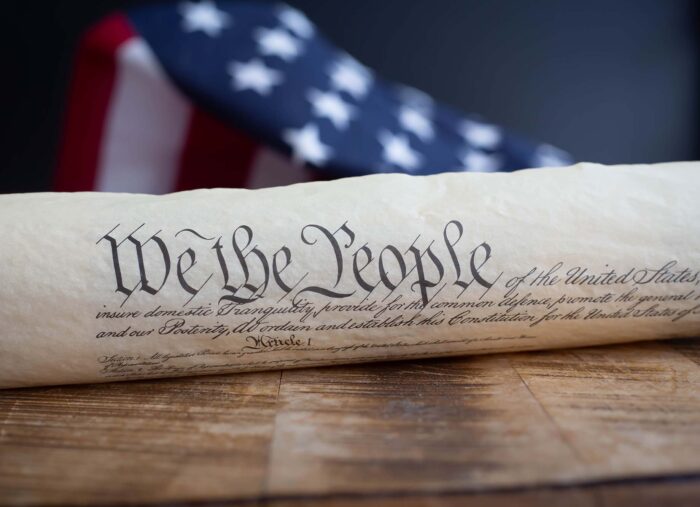 We the People of the United States,
insure domestic Tranquility, provide for the common defence, promote the general
and our Posterity, do ordain and establish this Constitution for the United States of
Article. I
Section. 1